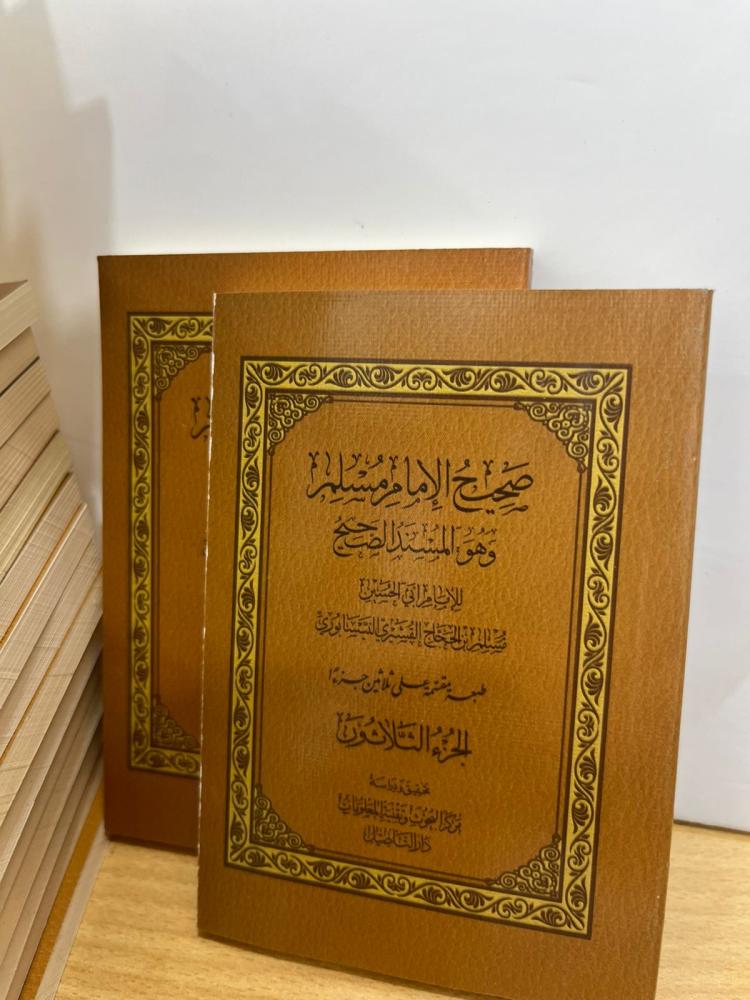 صَحِيحُ الإِمَامِ مُسْلِمٍ
وَهُوَ المُسْنَدُ الصَّحِيحُ
لِلإِمَامِ أَبِي الحُسَيْنِ
مُسْلِمِ بْنِ الحَجَّاجِ القُشَيْرِيِّ النَّيْسَابُورِيِّ
طبعة مقسمة على ثلاثين جزءًا
الجُزْءُ الثَّلَاثُونَ
تحقيق ودراسة
مركز البحوث وتقنية المعلومات
دار التأصيل